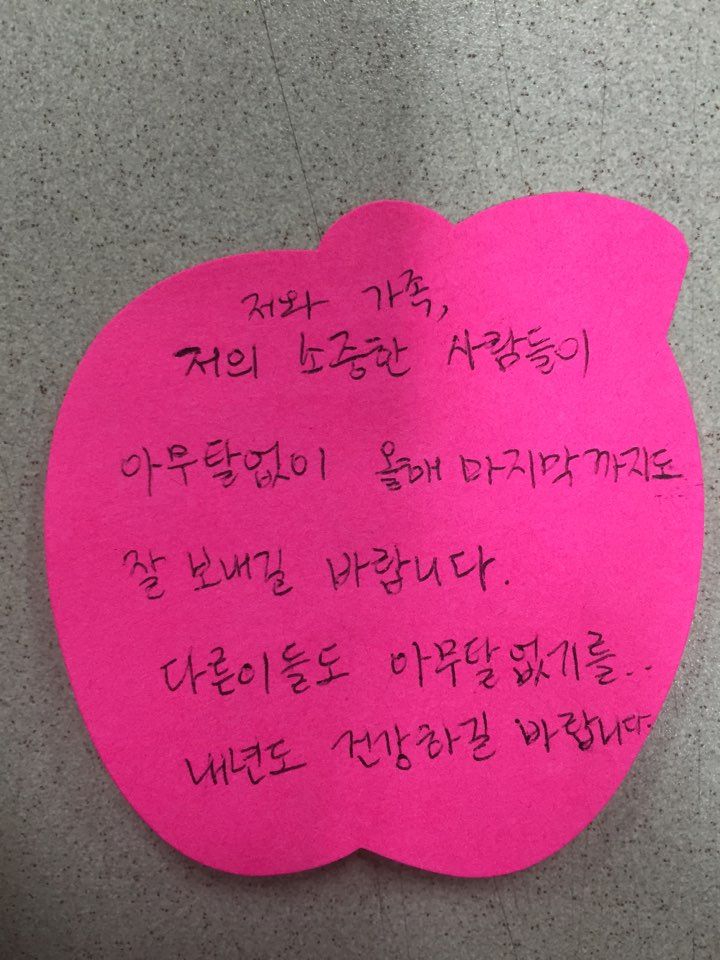 저와 가족,
저의 소중한 사람들이
아무탈없이 올해 마지막까지도
잘 보내길 바랍니다.
다른이들도 아무탈없기를..
내년도 건강하길 바랍니다.